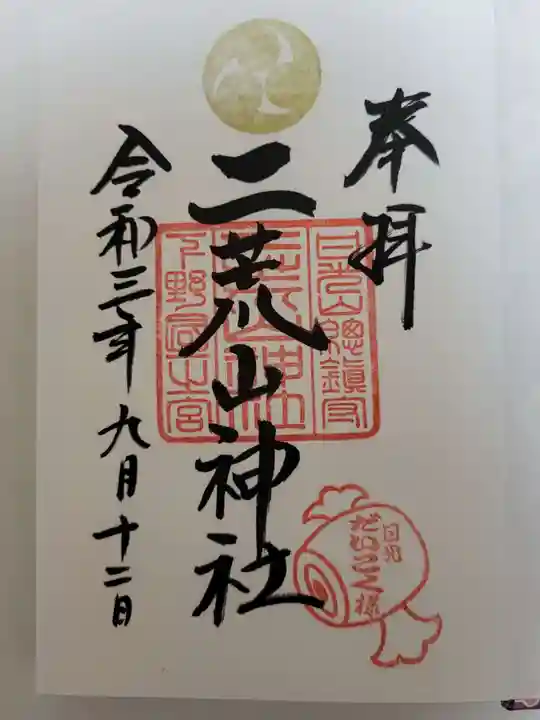 奉拝
日光山總鎮守
二荒山神社
二荒山神社
下野國一宮
令和三年九月十二日
日光
だいこく様